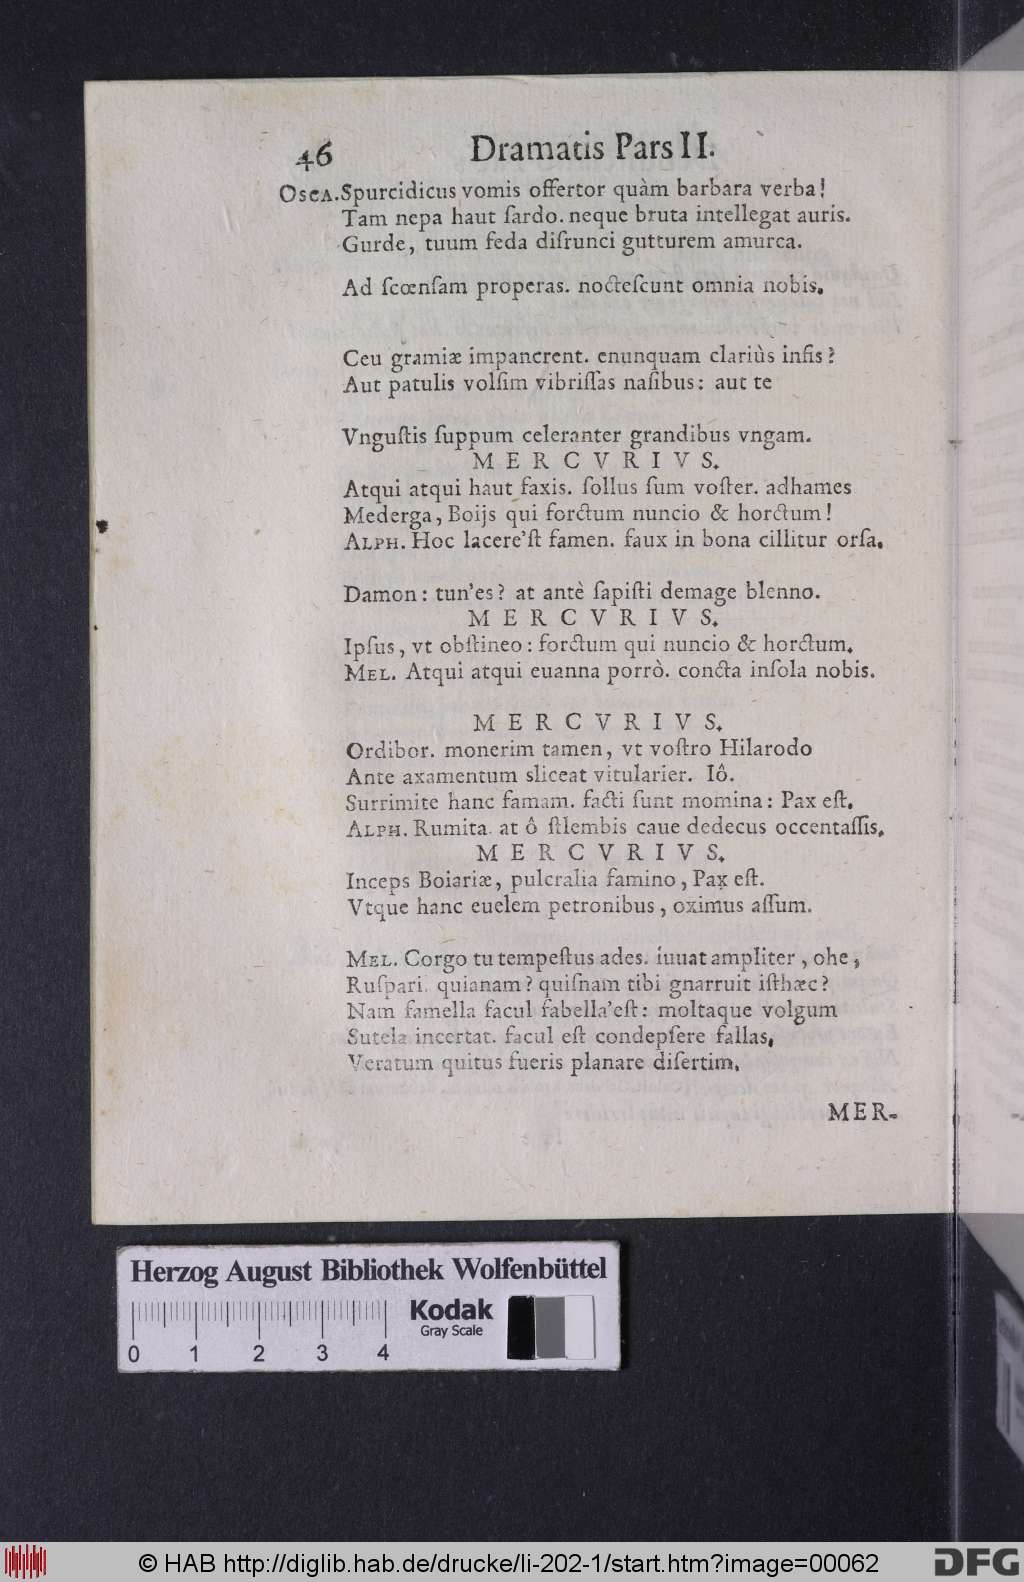 46 Dramatis Pars II.
Osca. Spurcidicus vomis offertor quàm barbara verba!
Tam nepa haut ſardo. neque bruta intellegat auris.
Gurde, tuum feda diſrunci gutturem amurca.
Ad ſcœnſam properas. nocteſcunt omnia nobis.
Ceu gramiæ impancrent. enunquam clariùs inſis?
Aut patulis volſim vibriſſas naſibus: aut te
Vnguſtis ſuppum celeranter grandibus vngam.
MERCVRIVS.
Atqui atqui haut faxis. ſollus ſum voſter. adhames
Mederga, Boijs qui forctum nuncio & horctum!
ALPH. Hoc lacere'ſt famen. faux in bona cillitur orſa.
Damon: tun'es? at antè ſapiſti demage blenno.
MERCVRIVS.
Ipſus, vt obſtineo: forctum qui nuncio & horctum.
MEL. Atqui atqui euanna porrò. concta inſola nobis.
MERCVRIVS.
Ordibor. monerim tamen, vt voſtro Hilarodo
Ante axamentum sliceat vitularier. Iô.
Surrimite hanc famam. facti ſunt momina: Pax eſt.
ALPH. Rumita. at ô ſtlembis caue dedecus occentaſſis.
MERCVRIVS.
Inceps Boiariæ, pulcralia famino, Pax eſt.
Vtque hanc euelem petronibus, oximus aſſum.
MEL. Corgo tu tempeſtus ades. iuuat ampliter, ohe,
Ruſpari. quianam? quiſnam tibi gnarruit iſthæc?
Nam famella facul fabella'eſt: moltaque volgum
Sutela incertat. facul eſt condepſere fallas,
Veratum quitus fueris planare diſertim.
MER-
Herzog August Bibliothek Wolfenbüttel
Kodak
Gray Scale
0 1 2 3 4
© HAB http://diglib.hab.de/drucke/li-202-1/start.htm?image=00062
DFG